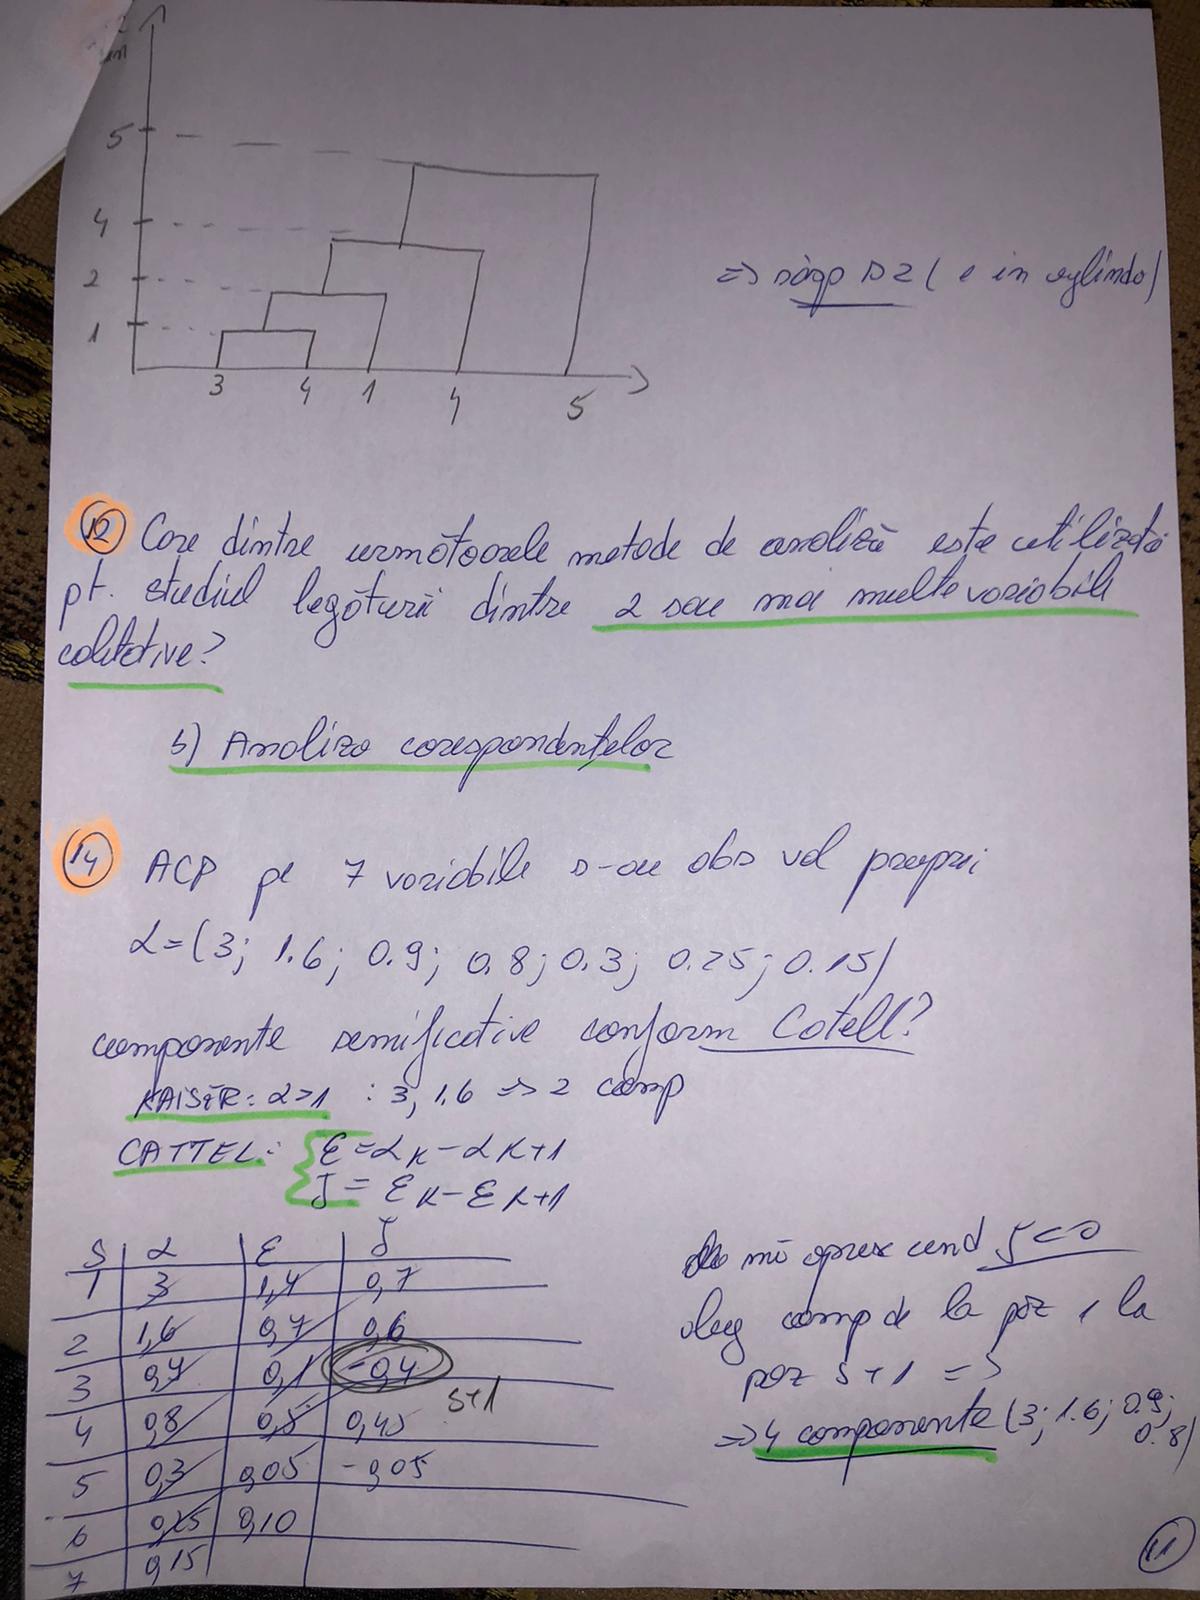 5
4
2
1
3 4 1 4 5
=> răsp D2 (e in oglindo)
12 Care dintre urmatoarele metode de analiză este utilizata
pt. studiul legăturii dintre 2 sau mai multe variabile
calitative?
b) Analiza corespondentelor
14 ACP pe 7 variabile s-au obs val proprii
α=(3; 1.6; 0.9; 0.8; 0.3; 0.25; 0.15)
componente semificative conform Catell?
KAISER: α>1 : 3, 1.6 => 2 comp
CATTEL: { Ɛ=αk-αk+1
J = Ɛk-Ɛk+1
S | α | Ɛ | J
1 | 3 | 1,4 | 0,7
2 | 1,6 | 0,7 | 0,6
3 | 0,9 | 0,1 | -0,4 s+1
4 | 0,8 | 0,5 | 0,45
5 | 0,3 | 0,05 | -0,05
6 | 0,25 | 0,10
7 | 0,15
mă oprex cand J<0
aleg comp de la poz 1 la
poz s+1 =>
=> 4 componente (3; 1.6; 0.9;
0.8)
11